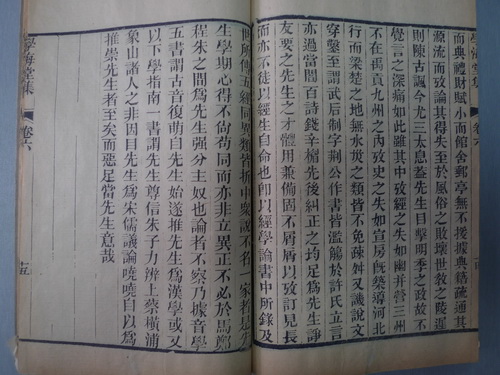 而典禮財賦小而館舍郵亭無不援據典籍疏通其
源流而攷論其得失至於風俗之敗壞世教之陵遲
則陳古諷今尤三太息蓋先生目擊明季之政故不
覺言之深痛如此雖其中攷經之失如幽并營三州
不在禹貢九州之內攷史之失如宣房旣築導河北
行而梁楚之地無水災之類皆不免疎舛又譏說文
穿鑿至謂武后制字荆公作書皆濫觴於許氏立言
亦過當閻百詩錢辛楣先後糾正之均足爲先生諍
友要之先生之才體用兼備固不屑屑以攷訂見長
而亦不徒以經生自命也卽以經學論書中所錄及
世所傳五經同異皆折中衆說不名一家者是先
生學期心得不尙苟同而亦非立異正不必於馬鄭
程朱之間爲先生强分主奴也論者不察乃據音學
五書謂古音復萌自先生始遂推先生爲漢學或又
以下學指南一書謂先生尊信朱子力辨上蔡橫浦
象山諸人之非因目先生爲宋儒議論嘵嘵自以爲
推崇先生者至矣而惡足當先生意哉
學海堂集
卷六
十五